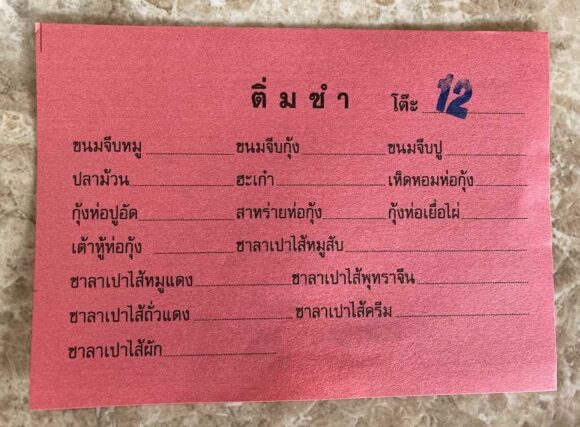 ติ่มซำ โต๊ะ 12
ขนมจีบหมู ขนมจีบกุ้ง ขนมจีบปู
ปลาม้วน ฮะเก๋า เห็ดหอมห่อกุ้ง
กุ้งห่อปูอัด สาหร่ายห่อกุ้ง กุ้งห่อเยื่อไผ่
เต้าหู้ห่อกุ้ง ซาลาเปาไส้หมูสับ
ซาลาเปาไส้หมูแดง ซาลาเปาไส้พุทราจีน
ซาลาเปาไส้ถั่วแดง ซาลาเปาไส้ครีม
ซาลาเปาไส้ผัก